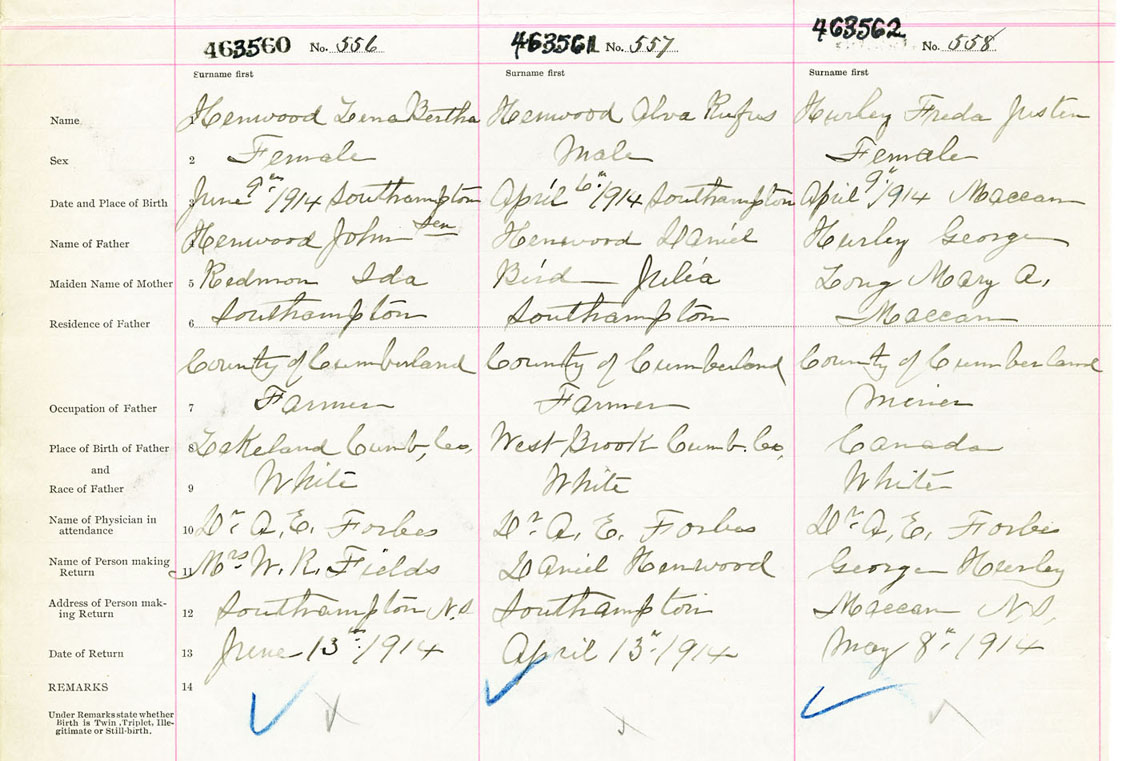 463560 No. 556 463561 No. 557 463562 No. 558
Surname first Surname first Surname first
Name Henwood Lena Bertha Henwood Alva Rufus Hurley Freda Justen
Sex 2 Female Male Female
Date and Place of Birth 3 June 9th/1914 Southampton April 6th/1914 Southampton April 9th/1914 Maccan
Name of Father 4 Henwood John Sen Henwood Daniel Hurley George
Maiden Name of Mother 5 Redmon Ida Bird Julia Long Mary A.
Residence of Father 6 Southampton Southampton Maccan
County of Cumberland County of Cumberland County of Cumberland
Occupation of Father 7 Farmer Farmer Miner
Place of Birth of Father 8 Lakeland Cumb, Co, West Brook Cumb. Co, Canada
and
Race of Father 9 White White White
Name of Physician in
attendance 10 Dr A. E. Forbes Dr A. E. Forbes Dr A. E. Forbes
Name of Person making
Return 11 Mrs W. R. Fields Daniel Henwood George Hurley
Address of Person mak-
ing Return 12 Southampton N.S. Southampton Maccan N.S.
Date of Return 13 June 13th/1914 April 13th/1914 May 8th/1914
REMARKS 14
Under Remarks state whether
Birth is Twin, Triplet, Ille-
gitimate or Still-birth.